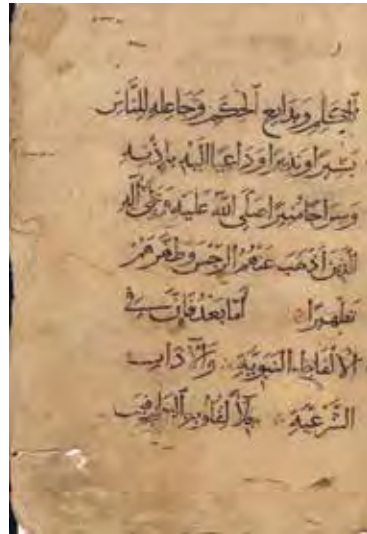 الكلم وبدايع الحكم وجاعله للناس
بشيرا ونذيرا وداعيا اليه باذنه
وسراجا منيرا صلى الله عليه وعلى آله
الذين اذهب عنهم الرجس وطهرهم
تطهيرا اما بعد فان في
الالفاظ النبوية والآداب
الشرعية جلاء لقلوب العارفين